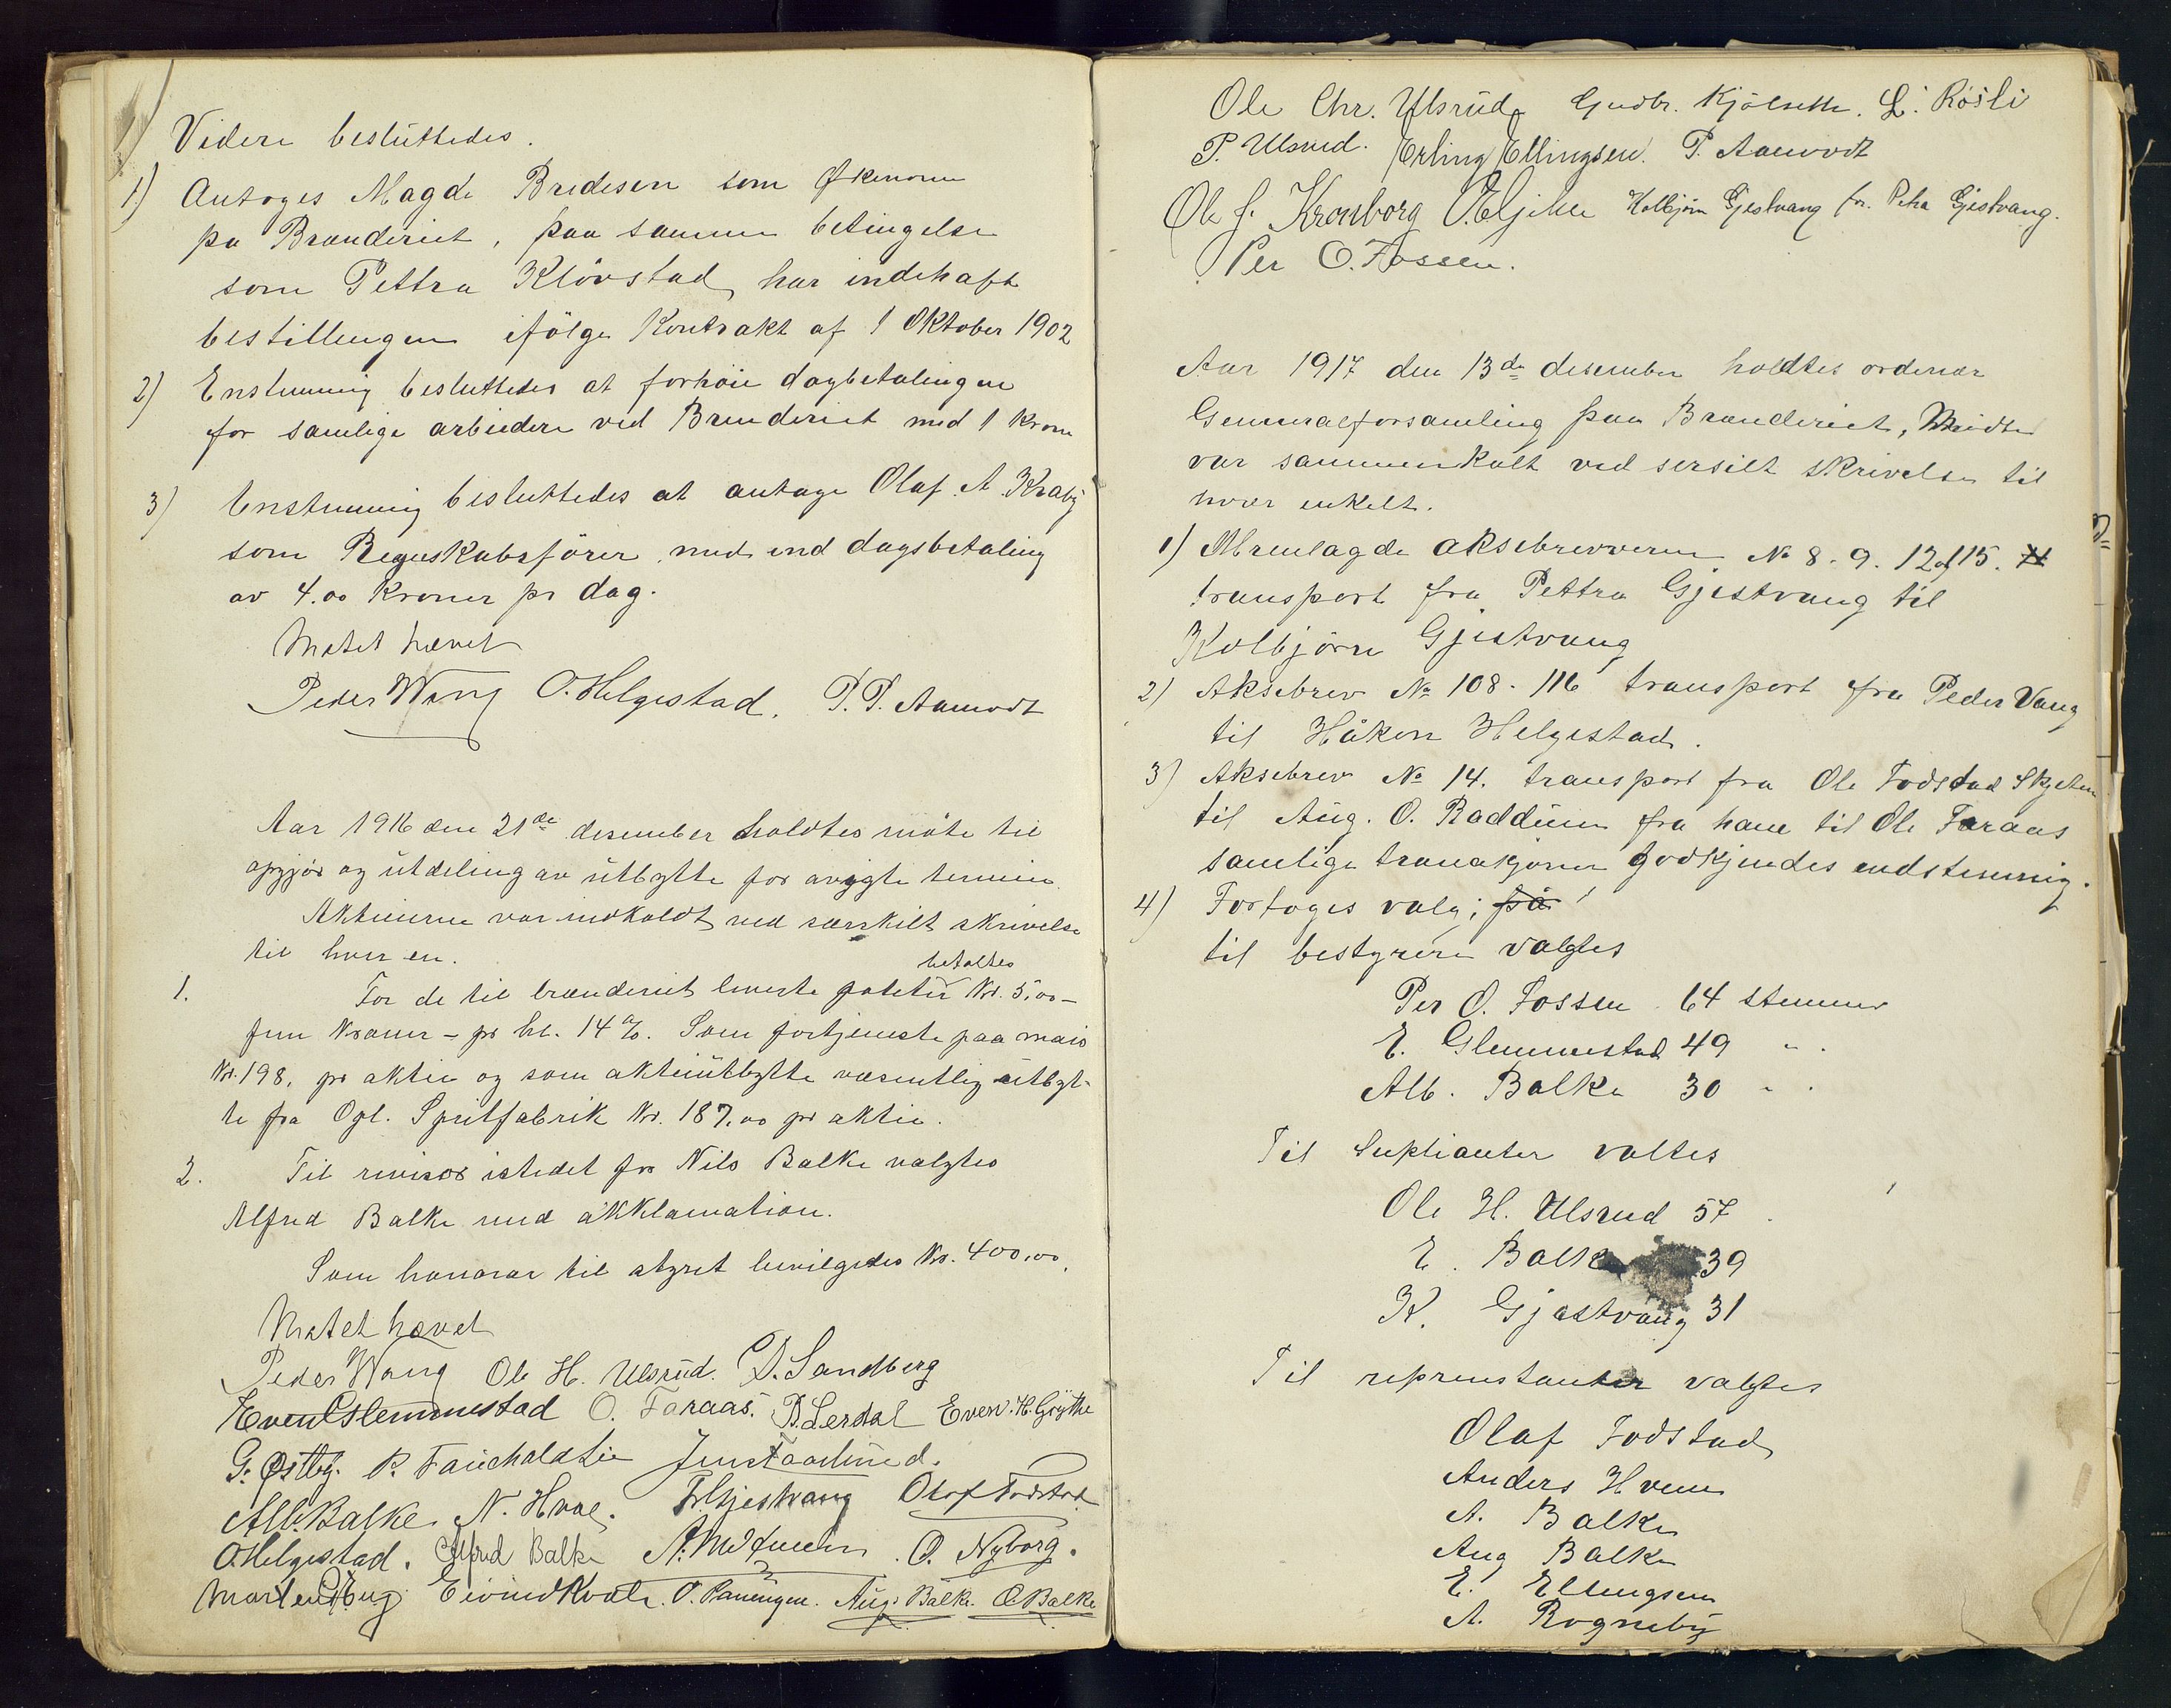 Videre besluttedes.
1.) Antoges Magda Bredesen som Økonom
pa Brænderiet, paa samme betingelse
som Pettra Klövstad, har indehaft
bestillingen ifölge Kontrakt af 1 Oktober 1902
2) Enstemmig besluttedes at forhöie dagbetalingen
for samlige arbeidere ved Brenderiet med 1 Krone
3) Enstemmig besluttedes at antage Olaf. A. Kraby
som Regnskabsförer med end dagsbetaling
av 4.00 Kroner pr dag.
Mötet hævet
Peder Wang O. Helgestad. P. P. Aamodt
Aar 1916 den 21de desember holdtes möte til
opgjör og utdeling av utbytte for avvigte termin.
Aktierne var indkaldt ved særskilt skrivelse
til hver en.
1. For de til brænderiet leverte poteter betaltes Kr. 5,00 –
fem Kroner – pr hl. 14 %. Som fortjeneste paa mais
Kr. 198, pr aktie og som aktieutbytte væsentlig utbyt-
te fra Opl. Spritfabrik Kr. 187,00 pr aktie.
2. Til revisor istedet for Nils Balke valgtes
Alfred Balke med akklamation.
Som honorar til styret bevilgedes Kr. 400,00.
Mötet hævet
Peder Wang Ole H. Ulsrud. D. Sandberg
Even Glemmestad O. Faraas. P. Lerdal Even. H. Grythe
G. Østby. P. Fauchald Lie Jens Faarlund.
Alb. Balke. N. Hval. P. Gjestvang Olaf Fodstad
O. Helgestad. Alfred Balke O. Nyborg.
Marten Eivind Kvale. Aug. Balke. O. Balke
Ole Chr. Ulsrud Gudbr. Kjölseth. L. Rösli
P. Ulsrud. Erling Ellingsen. P. Aamodt
Ole J. Kronborg Kolbjörn Gjestvang for Petra Gjestvang.
Per O. Fossen.
Aar 1917 den 13de desember holdtes ordenær
Generalforsamling paa Brænderiet, Mödte
var sammenkalt ved sersilt skrivelse til
hvær enkelt.
1) Abrenlagde aksebreverne No 8. 9. 12 og 15.
transport fra Pettra Gjestvang til
Kolbjörn Gjestvang
2) Aksebrev No 108 - 116 transport fra Peder Vang
til Håkon Helgestad.
3) Aksebrev No 14. transport fra Ole Fodstad Skjelan
til Aug. O. Raddum fra ham til Ole Faraas
samlige transakjoner godkjendes endstemmig.
4) Fortoges valg; på
til bestyrere valgtes
Per O. Fossen 64 stemmer
E. Glemmestad 49 " .
Alb. Balke 30 " .
Til Suplianter valtes
Ole H. Ulsrud 57 .
E. Balke 39
K. Gjestvang 31
Til reprenstanter valgtes
Olaf Fodstad
Anders Hveem
A. Balke
Aug Balke
E. Ellingsen
A. Rogneby